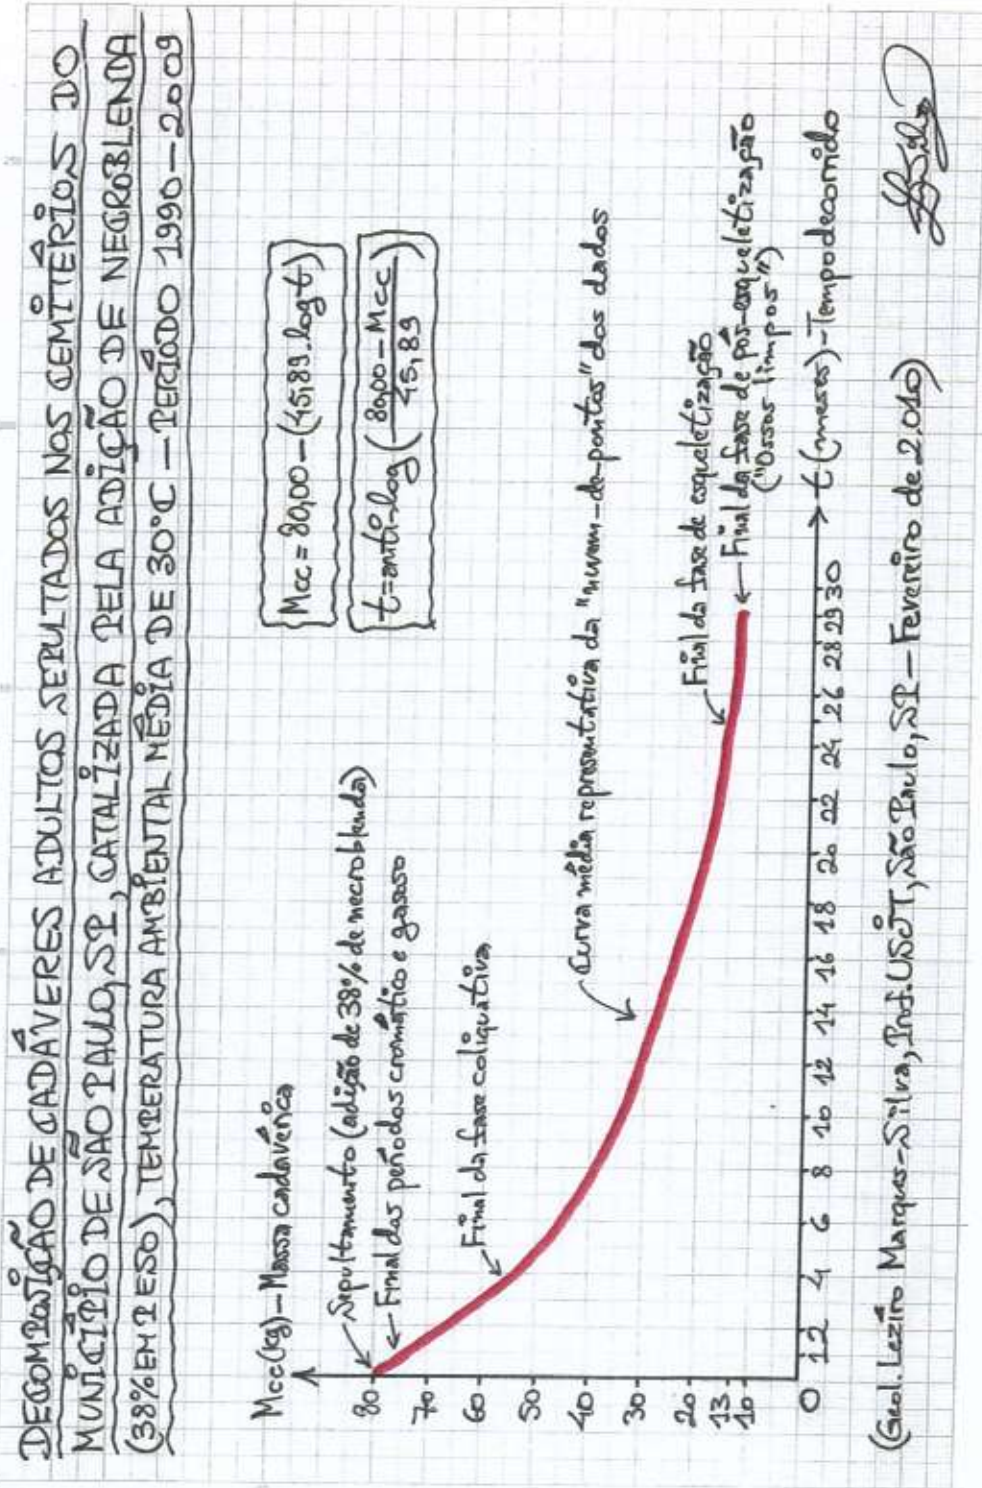 DECOMPOSIÇÃO DE CADÁVERES ADULTOS SEPULTADOS NOS CEMITÉRIOS DO
MUNICÍPIO DE SÃO PAULO, SP, CATALIZADA PELA ADIÇÃO DE NECROBLENDA
(38% EM PESO), TEMPERATURA AMBIENTAL MÉDIA DE 30°C — PERÍODO 1990-2009
Mcc(kg)-Massa cadavérica
Mcc = 80,00-(45,89.log t)
t=anti-log(80,00-Mcc
45,89)
Sepultamento (adição de 38% de necroblenda)
Final dos períodos cromático e gasoso
Final da fase coliquativa
Curva média representativa da "nuvem-de-pontos" dos dados
Final da fase de esqueletização
Final da fase de pós-esqueletização
("Ossos limpos")
80
70
60
50
40
30
20
13
10
0 1 2 4 6 8 10 12 14 16 18 20 22 24 26 28 29 30
t(meses)-Tempo decorrido
(Geol. Lezíro Marques-Silva, Prof. USJT, São Paulo, SP-Fevereiro de 2.010)